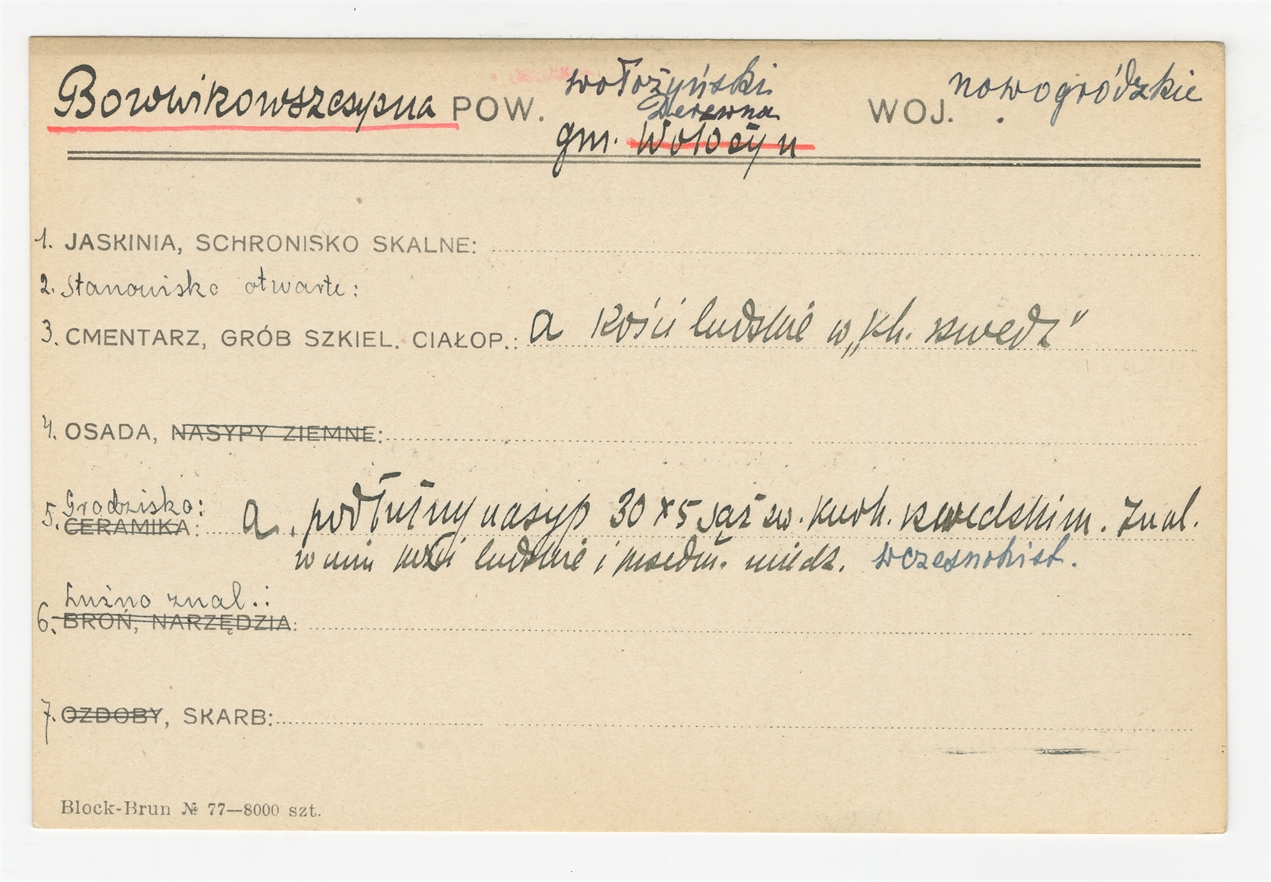 Borowikowszczyzna POW. wołożyński WOJ. nowogródzkie
Derewna
gm. Wołożyn
1. JASKINIA, SCHRONISKO SKALNE:
2. Stanowisko otwarte:
3. CMENTARZ, GRÓB SZKIEL. CIAŁOP.: a kości ludzkie w „kh. szwedz"
4. OSADA, NASYPY ZIEMNE:
Grodzisko:
5. CERAMIKA: a. podłużny nasyp 30 x 5 sąż zw. kurh. szwedzkim. Znal.
w nim kości ludzkie i przedm. miedz. wczesnohist.
Luźno znal.:
6. BROŃ, NARZĘDZIA:
7. OZDOBY, SKARB:
Block-Brun № 77—8000 szt.